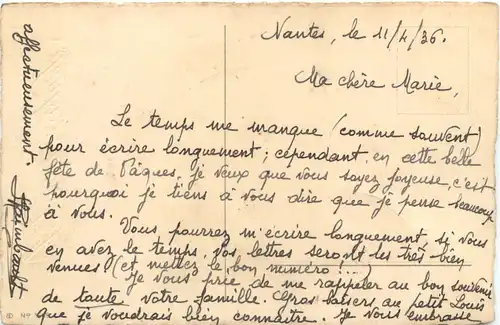 Nantes, le 11/4/36.
Ma chère Marie,
Le temps me manque (comme souvent)
pour écrire longuement ; cependant, en cette belle
fête de Pâques, je veux que vous soyez joyeuse, c'est
pourquoi je tiens à vous dire que je pense beaucoup
à vous.
Vous pourrez m'écrire longuement si vous
en avez le temps, vos lettres seront les très bien
venues (et mettez le bon numéro !...)
Je vous prie de me rappeler au bon souvenir
de toute votre famille. Gros baisers au petit Louis
que je voudrais bien connaître. Je vous embrasse
affectueusement